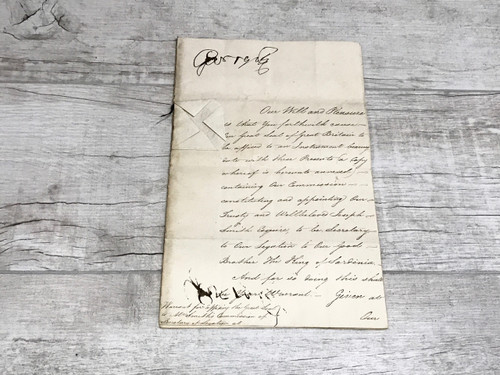 George R
Our Will and Pleasure
is that You forthwith cause
Our Great Seal of Great Britain to
be affixed to an Instrument bearing
date with these Presents (a Copy
whereof is hereunto annexed)
containing Our Commission
constituting and appointing Our
Trusty and Wellbeloved Joseph
Smith Esquire, to be Secretary
to Our Legation to Our Good
Brother The King of Sardinia
And for so doing this shall
be Your Warrant. Given at
Our
Warrant for affixing the Great Seal
to Mr Smith's Commission of
Secretary of Legation at